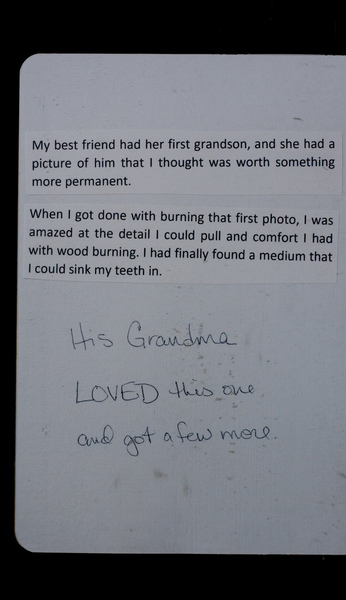 My best friend had her first grandson, and she had a
picture of him that I thought was worth something
more permanent.
When I got done with burning that first photo, I was
amazed at the detail I could pull and comfort I had
with wood burning. I had finally found a medium that
I could sink my teeth in.
His Grandma
LOVED this one
and got a few more.